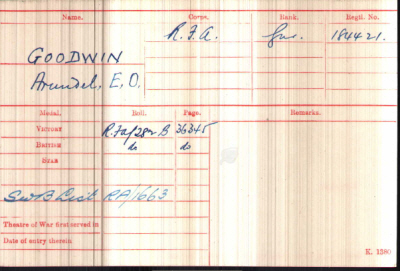 Name. Corps. Rank. Regtl. No.
R.F.A. Gnr. 184421.
GOODWIN
Arundel, E. O.
Medal. Roll. Page. Remarks.
VICTORY R.F.A/282 B 36345
BRITISH do do
STAR
SWB List RA/1663
Theatre of War first served in
Date of entry therein
K. 1380